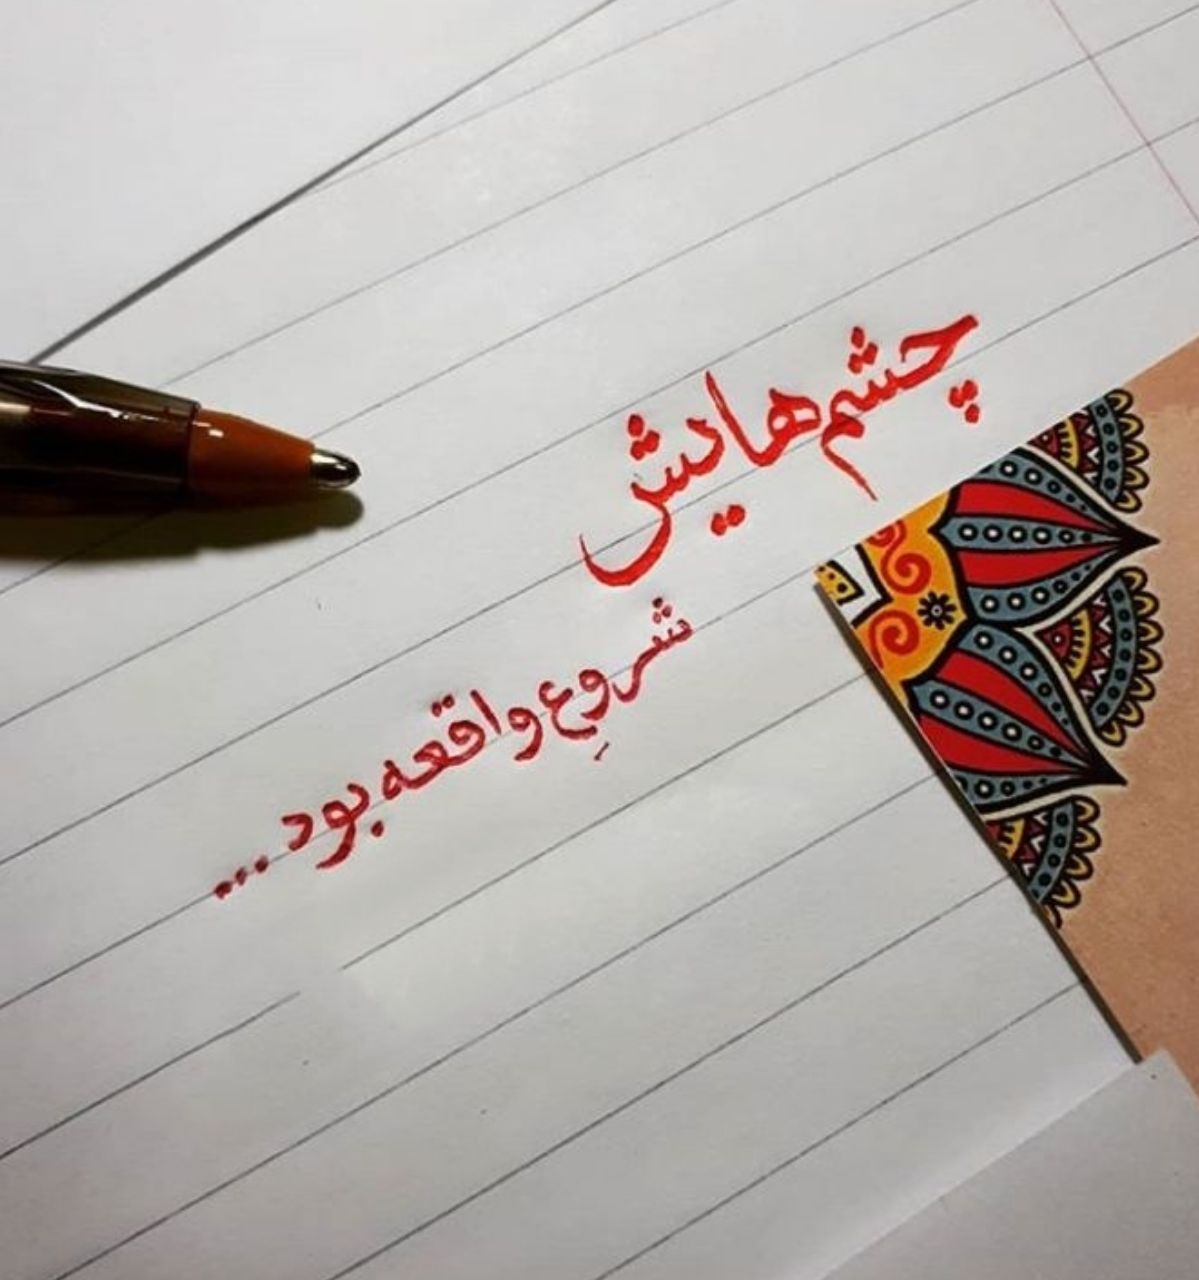 چشم‌هایش
شروعِ واقعه بود...